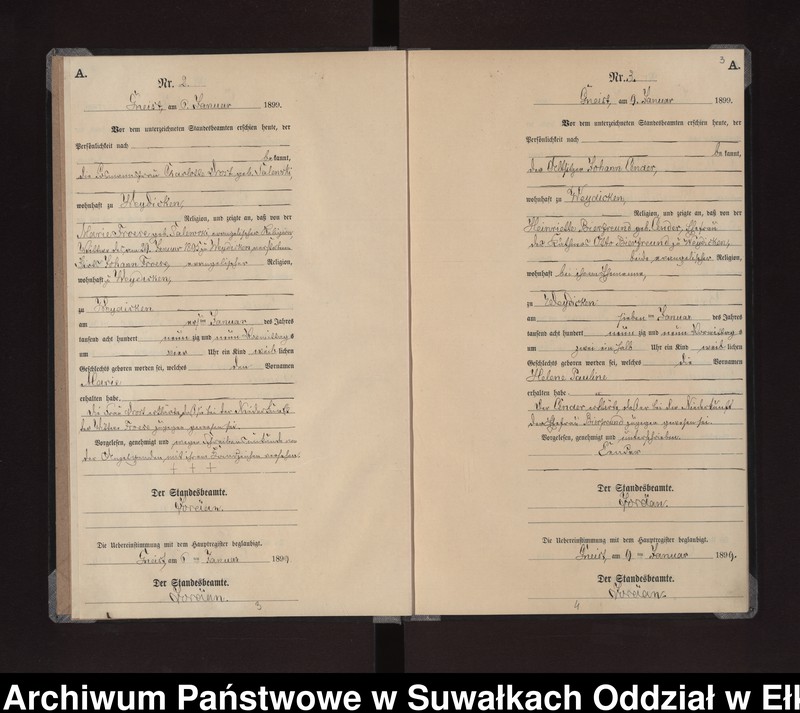 A.
Nr. 2.
Gneist, am 6. Januar 1899.
Vor dem unterzeichneten Standesbeamten erschien heute, der
Persönlichkeit nach
bekannt,
die Charlotte geb.
wohnhaft zu Weydicken,
Religion, und zeigte an, daß von der
Marie Froese geb. evangelischer Religion
Januar zu Weydicken verstorbenen
Johann Froese, evangelischer Religion,
wohnhaft zu Weydicken,
zu Weydicken
am Januar des Jahres
tausend acht hundert neunzig und neun Vormittags
um vier Uhr ein Kind weiblichen
Geschlechts geboren worden sei, welches den Vornamen
Marie
erhalten habe.
Die Frau erklärte, daß sie bei der Niederkunft
der Witwe Froese zugegen gewesen sei.
Vorgelesen, genehmigt und wegen Schreibensunkunde von
der Angeb mit ihrem Handzeichen versehen.
† † †
Der Standesbeamte.
Die Uebereinstimmung mit dem Hauptregister beglaubigt.
Gneist, am 6ten Januar 1899
Der Standesbeamte.
3
3
A.
Nr. 3.
Gneist, am 9. Januar 1899.
Vor dem unterzeichneten Standesbeamten erschien heute, der
Persönlichkeit nach
bekannt,
der Johann Ender,
wohnhaft zu Weydicken,
Religion, und zeigte an, daß von der
Heinriette Bierfreund geb. Ender, Ehefrau
des Otto Bierfreund zu Weydicken,
beide evangelischer Religion,
wohnhaft bei ihrem Ehemanne,
zu Weydicken
am sieben ten Januar des Jahres
tausend acht hundert neunzig und neun Vormittags
um zwei ein halb Uhr ein Kind weiblichen
Geschlechts geboren worden sei, welches die Vornamen
Helene Pauline
erhalten habe.
Der Ender erklärte, daß er bei der Niederkunft
der Ehefrau Bierfreund zugegen gewesen sei.
Vorgelesen, genehmigt und unterschrieben.
Ender
Der Standesbeamte.
Die Uebereinstimmung mit dem Hauptregister beglaubigt.
Gneist, am 9ten Januar 1899.
Der Standesbeamte.
4
Archiwum Państwowe w Suwałkach Oddział w Ełk